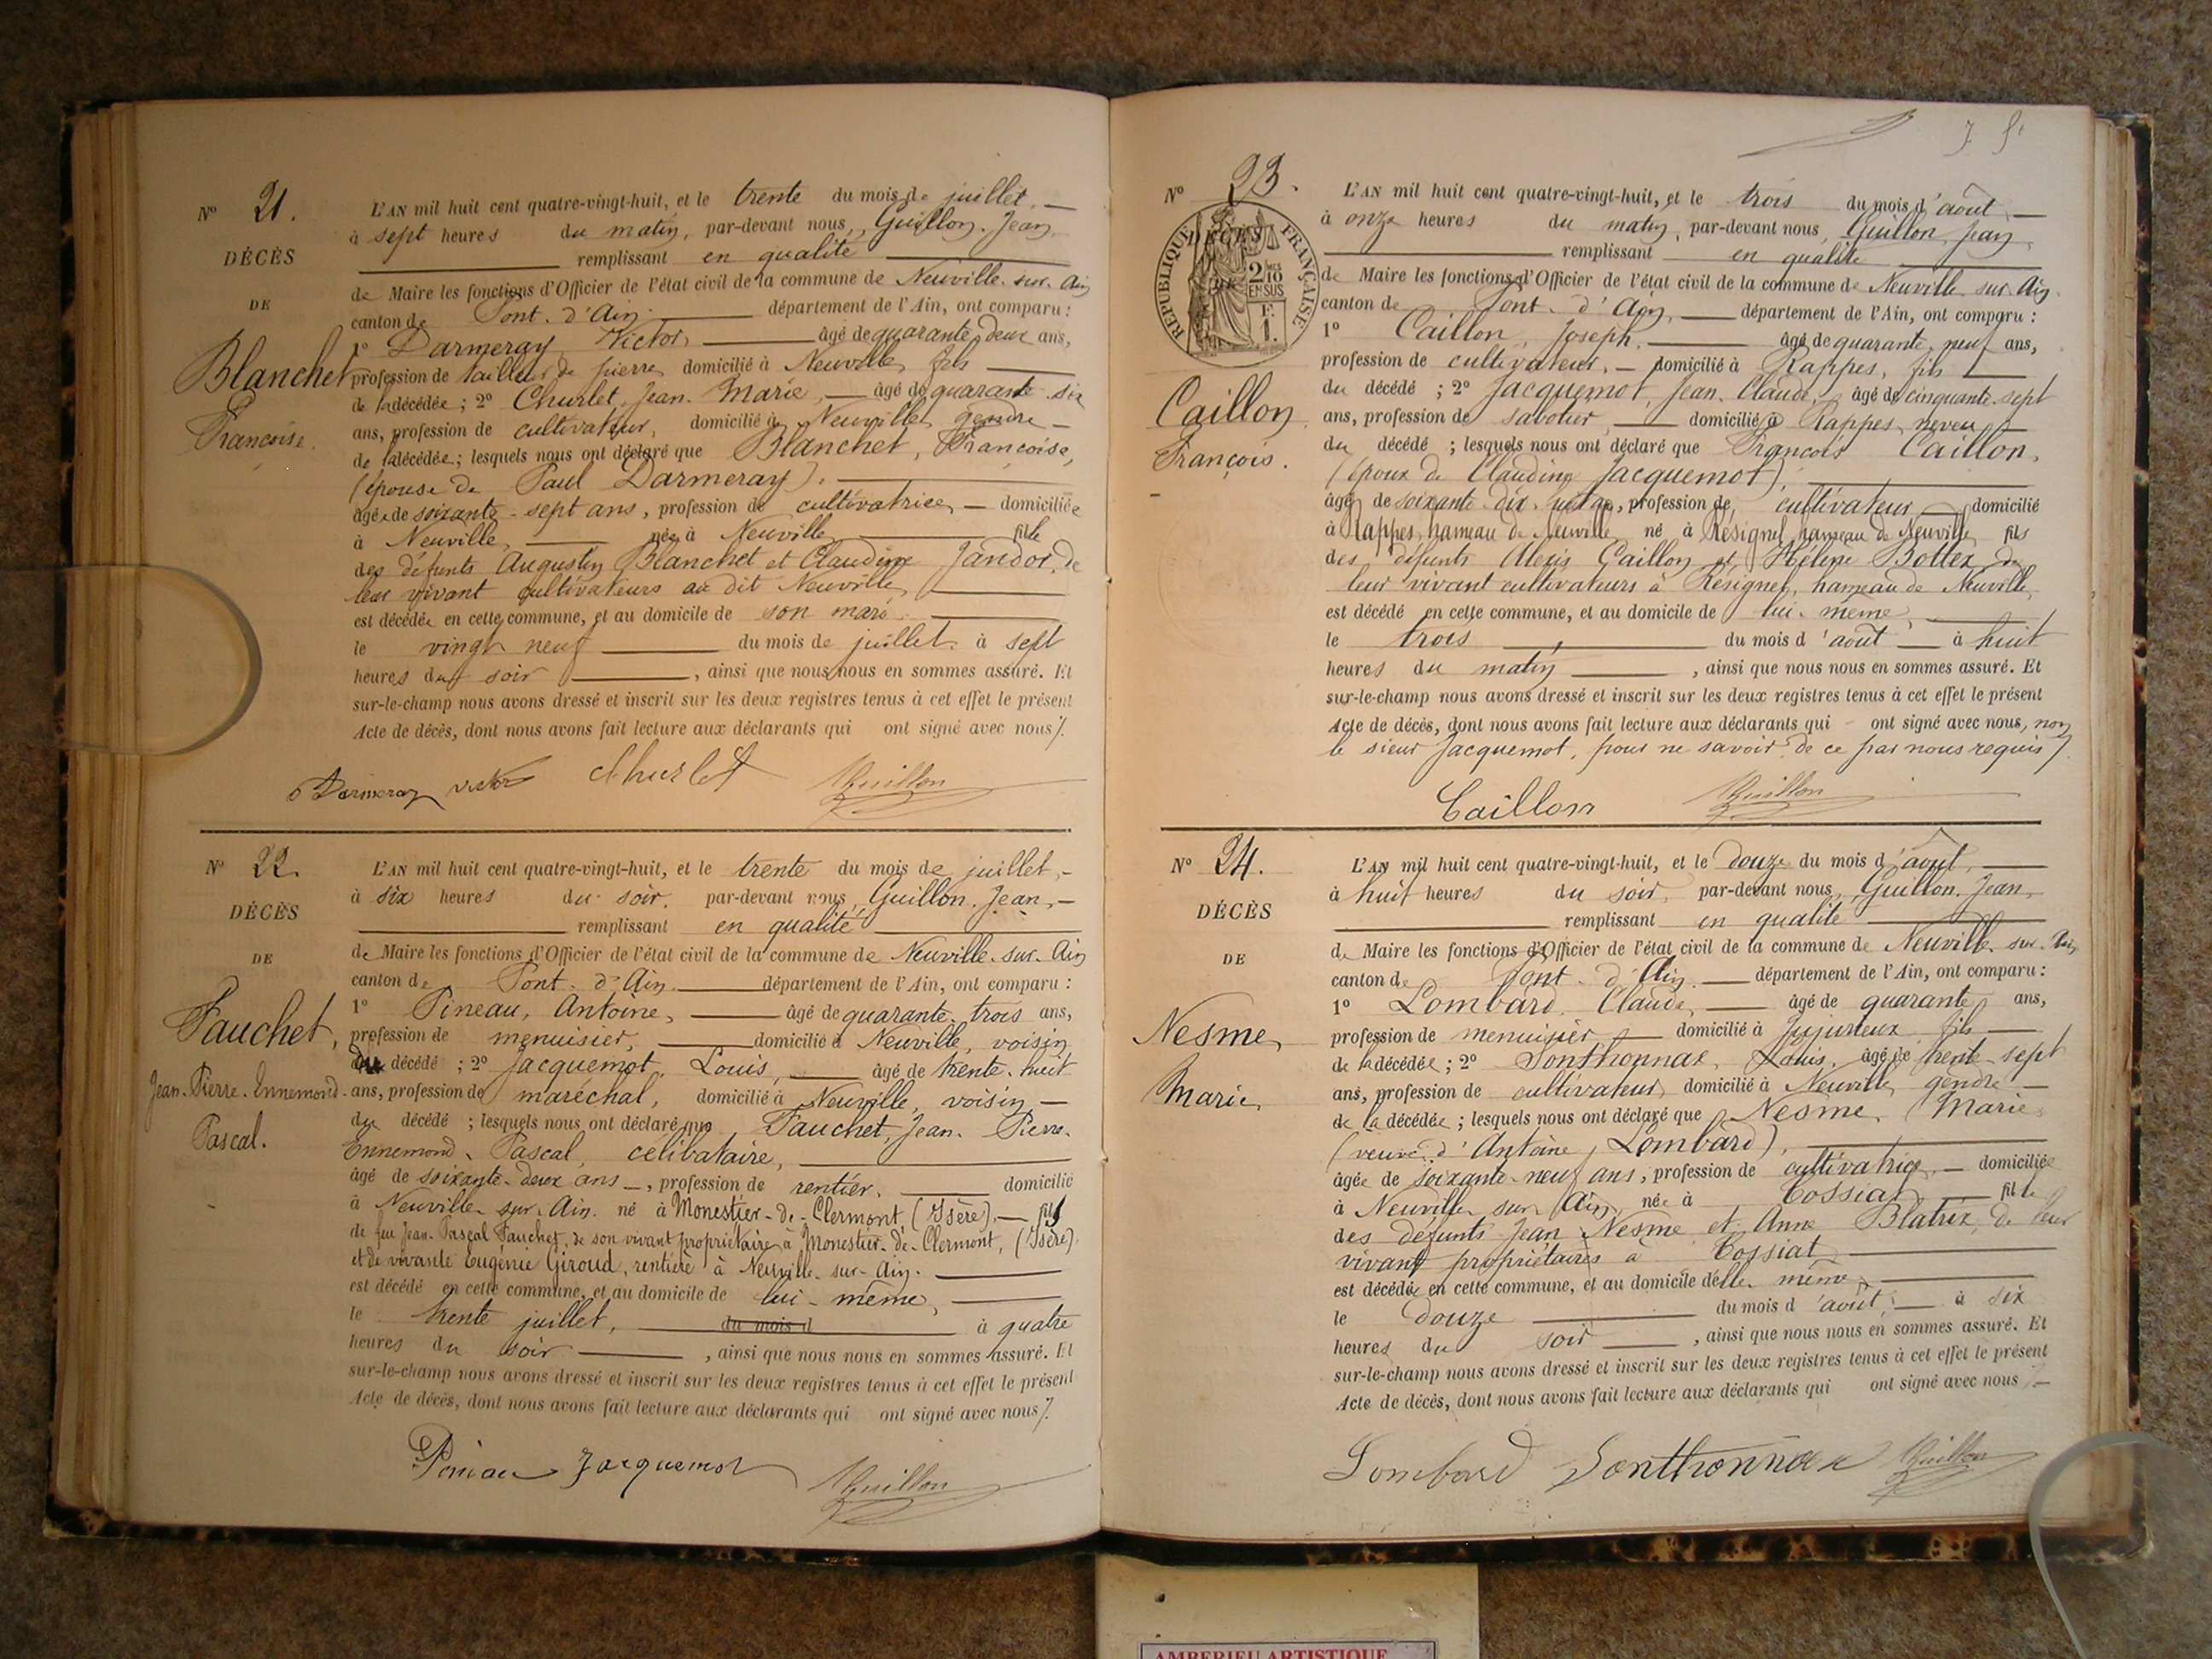 N° 21.
DÉCÈS
DE
Blanchet
Françoise.
L'AN mil huit cent quatre-vingt-huit, et le trente du mois de juillet, —
à sept heures du matin, par-devant nous, Guillon, Jean,
remplissant en qualité
de Maire les fonctions d'Officier de l'état civil de la commune de Neuville-sur-Ain
canton de Pont-d'Ain. département de l'Ain, ont comparu :
1° Darmeray Victor, âgé de quarante deux ans,
profession de tailleur de pierre, domicilié à Neuville, fils
de la décédée ; 2° Churlet, Jean-Marie, âgé de quarante-six
ans, profession de cultivateur, domicilié à Neuville, gendre —
de la décédée ; lesquels nous ont déclaré que Blanchet, Françoise,
(épouse de Paul Darmeray).
âgée de soixante-sept ans, profession de cultivatrice, — domiciliée
à Neuville, née à Neuville, fille
des défunts Augustin Blanchet et Claudine Jandor, de
leur vivant cultivateurs au dit Neuville,
est décédée en cette commune, et au domicile de son mari.
le vingt neuf du mois de juillet à sept
heures du soir , ainsi que nous nous en sommes assuré. Et
sur-le-champ nous avons dressé et inscrit sur les deux registres tenus à cet effet le présent
Acte de décès, dont nous avons fait lecture aux déclarants qui ont signé avec nous /.
Darmeray victor Churlet Guillon
N° 22.
DÉCÈS
DE
Fauchet,
Jean-Pierre-Ennemond-
Pascal.
L'AN mil huit cent quatre-vingt-huit, et le trente du mois de juillet, —
à six heures du soir, par-devant nous, Guillon, Jean, —
remplissant en qualité
de Maire les fonctions d'Officier de l'état civil de la commune de Neuville-sur-Ain
canton de Pont-d'Ain. département de l'Ain, ont comparu :
1° Pineau, Antoine, âgé de quarante-trois ans,
profession de menuisier, domicilié à Neuville, voisin
du décédé ; 2° Jacquemot, Louis, âgé de trente-huit
ans, profession de maréchal, domicilié à Neuville, voisin —
du décédé ; lesquels nous ont déclaré que Fauchet, Jean-Pierre-
Ennemond-Pascal, célibataire,
âgé de soixante-deux ans —, profession de rentier, domicilié
à Neuville-sur-Ain. né à Monestier-de-Clermont, (Isère), — fils
de feu Jean-Pascal Fauchet, de son vivant propriétaire à Monestier-de-Clermont, (Isère)
et de vivante Eugénie Giroud, rentière à Neuville-sur-Ain.
est décédé en cette commune, et au domicile de lui-même,
le trente juillet, du mois d à quatre
heures du soir , ainsi que nous nous en sommes assuré. Et
sur-le-champ nous avons dressé et inscrit sur les deux registres tenus à cet effet le présent
Acte de décès, dont nous avons fait lecture aux déclarants qui ont signé avec nous /.
Pineau Jacquemot Guillon
N° 23.
RÉPUBLIQUE FRANÇAISE
DÉCÈS
2/10
EN SUS
1 F.
Caillon
François.
L'AN mil huit cent quatre-vingt-huit, et le trois du mois d'août, —
à onze heures du matin, par-devant nous, Guillon, Jean,
remplissant en qualité
de Maire les fonctions d'Officier de l'état civil de la commune de Neuville-sur-Ain.
canton de Pont-d'Ain, département de l'Ain, ont comparu :
1° Caillon, Joseph, âgé de quarante-neuf ans,
profession de cultivateur, — domicilié à Rappes, fils
du décédé ; 2° Jacquemot, Jean-Claude, âgé de cinquante-sept
ans, profession de sabotier, domicilié à Rappes, neveu
du décédé ; lesquels nous ont déclaré que François Caillon,
(époux de Claudine Jacquemot),
âgé de soixante-dix- ans, profession de cultivateur domicilié
à Rappes, hameau de Neuville né à Résignel, hameau de Neuville, fils
des défunts Alexis Caillon et Hélène Bottex, de
leur vivant cultivateurs à Résignel, hameau de Neuville,
est décédé en cette commune, et au domicile de lui-même,
le trois du mois d'août — à huit
heures du matin , ainsi que nous nous en sommes assuré. Et
sur-le-champ nous avons dressé et inscrit sur les deux registres tenus à cet effet le présent
Acte de décès, dont nous avons fait lecture aux déclarants qui ont signé avec nous, non
le sieur Jacquemot, pour ne savoir de ce par nous requis /.
Caillon Guillon
N° 24.
DÉCÈS
DE
Nesme,
Marie,
L'AN mil huit cent quatre-vingt-huit, et le douze du mois d'août,
à huit heures du soir, par-devant nous, Guillon, Jean,
remplissant en qualité
de Maire les fonctions d'Officier de l'état civil de la commune de Neuville-sur-Ain
canton de Pont-d'Ain. département de l'Ain, ont comparu :
1° Lombard, Claude, âgé de quarante ans,
profession de menuisier, domicilié à Jujurieux, fils —
de la décédée ; 2° Sonthonnax, Louis, âgé de trente-sept
ans, profession de cultivateur, domicilié à Neuville, gendre —
de la décédée ; lesquels nous ont déclaré que Nesme, Marie
(veuve d'Antoine Lombard),
âgée de soixante-neuf ans, profession de cultivatrice, — domiciliée
à Neuville-sur-Ain, née à Tossiat, fille
des défunts Jean Nesme et Anne Blatrix, de leur
vivant propriétaires à Tossiat
est décédée en cette commune, et au domicile d'elle-même,
le douze du mois d'août, — à six
heures du soir , ainsi que nous nous en sommes assuré. Et
sur-le-champ nous avons dressé et inscrit sur les deux registres tenus à cet effet le présent
Acte de décès, dont nous avons fait lecture aux déclarants qui ont signé avec nous /. —
Lombard Sonthonnax Guillon
AMBERIEU ARTISTIQUE